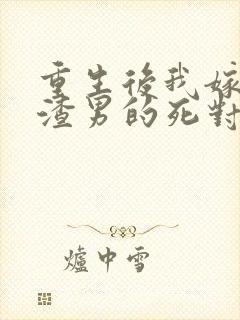 重生後我嫁
渣男的死對
爐中雪